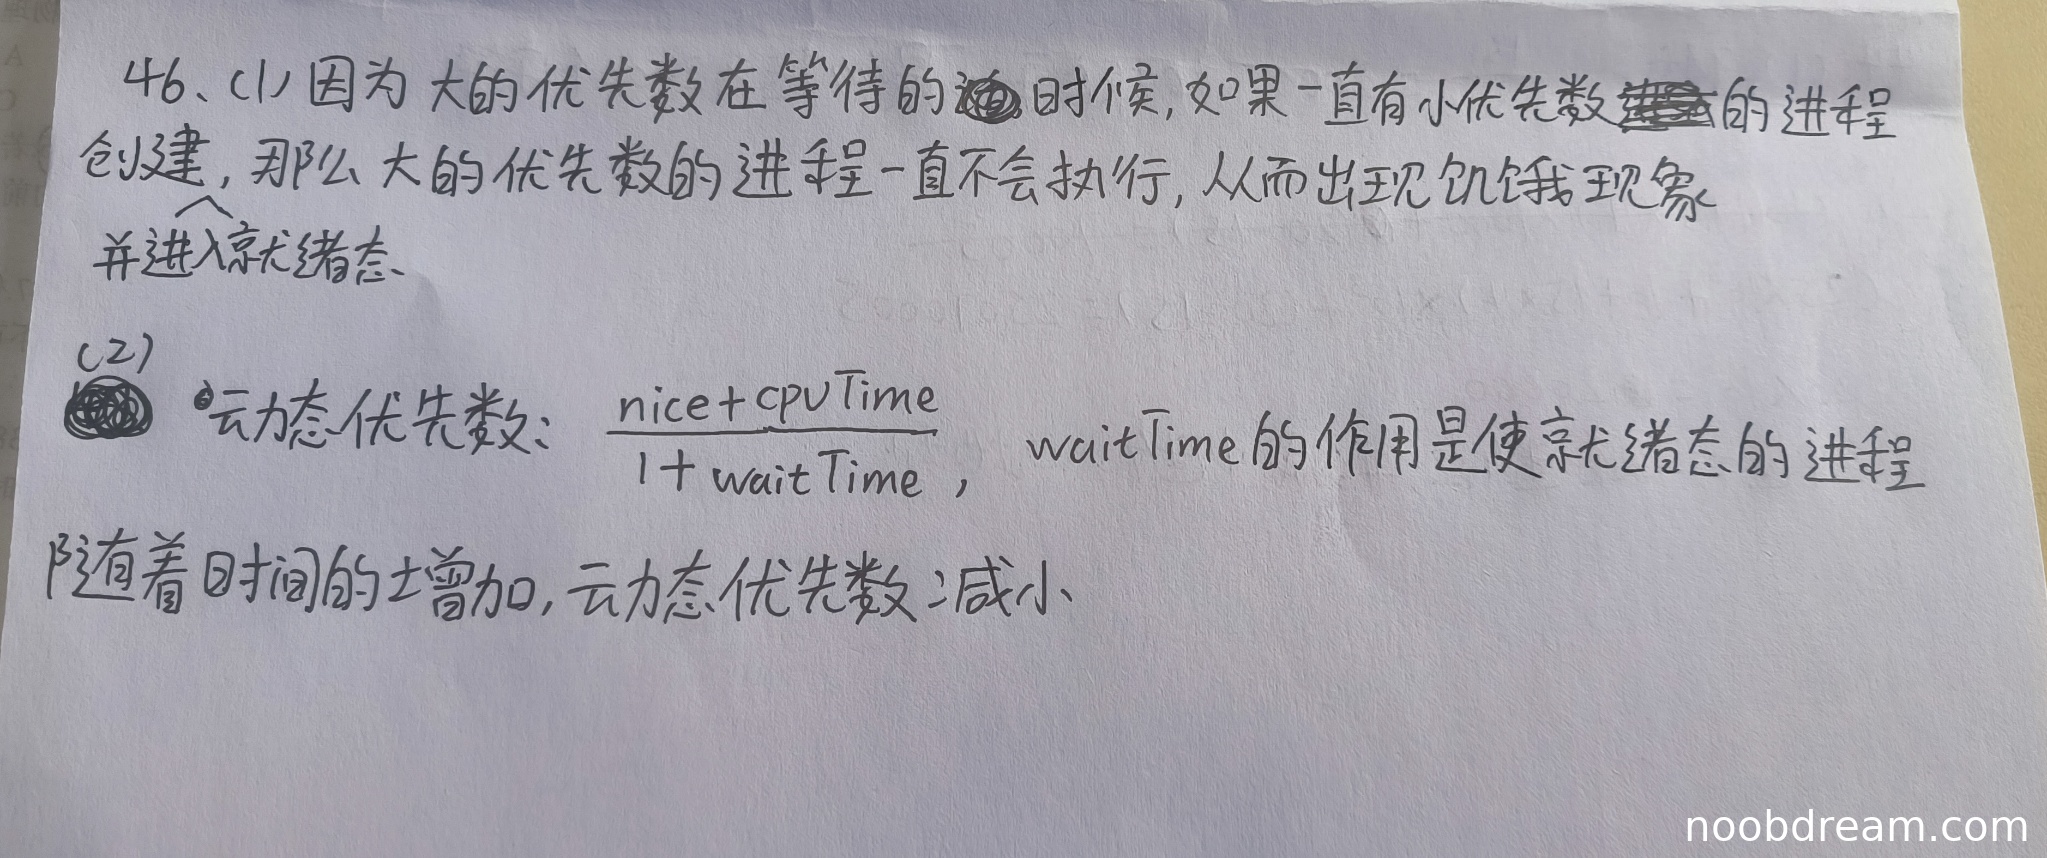 46、(1) 因为大的优先数在等待的时候,如果一直有小优先数的进程
创建,那么大的优先数的进程一直不会执行,从而出现饥饿现象
并进入就绪态、
(2)
动态优先数: nice+cpuTime / 1+waitTime , waitTime的作用是使就绪态的进程
随着时间的增加,动态优先数减小、
noobdream.com